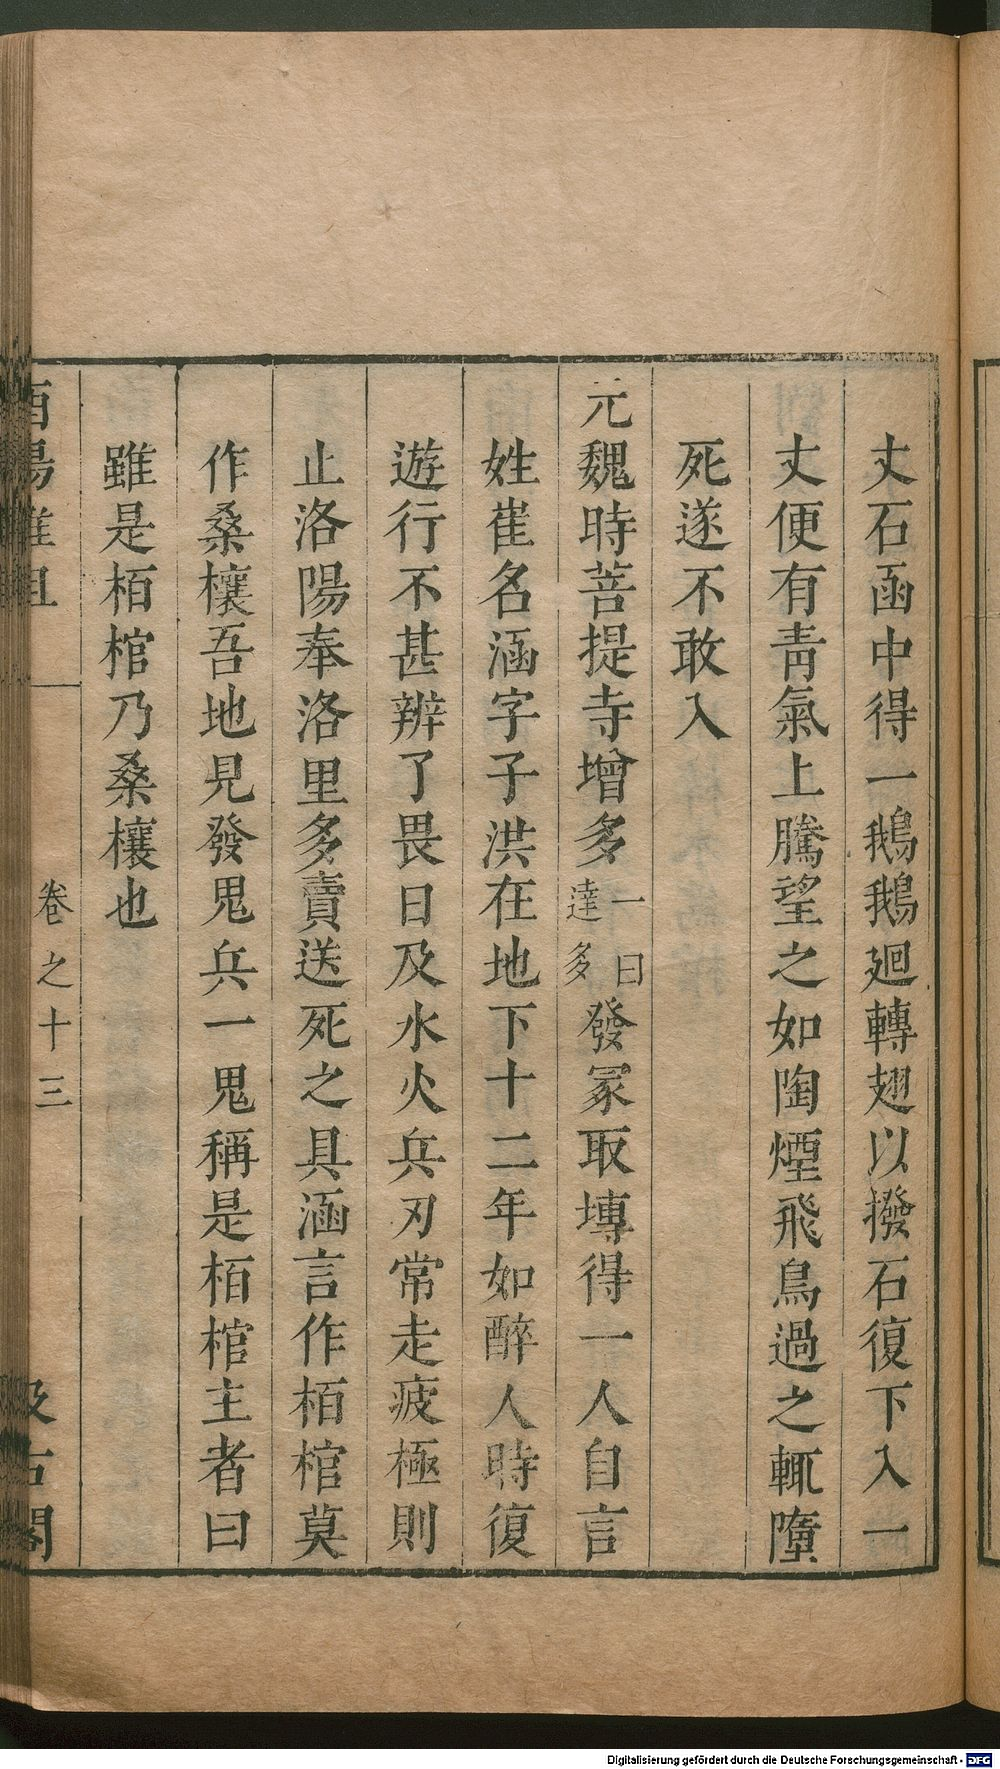 丈石函中得一鵝鵝廻轉翅以撥石復下入一
丈便有靑氣上騰望之如陶煙飛鳥過之輒墮
死遂不敢入
元魏時菩提寺增多一曰達多發冢取塼得一人自言
姓崔名涵字子洪在地下十二年如醉人時復
遊行不甚辨了畏日及水火兵刃常走疲極則
止洛陽奉洛里多賣送死之具涵言作栢棺莫
作桑欀吾地見發鬼兵一鬼稱是栢棺主者曰
雖是栢棺乃桑欀也
酉陽雜俎
卷之十三
汲古閣
Digitalisierung gefördert durch die Deutsche Forschungsgemeinschaft - DFG